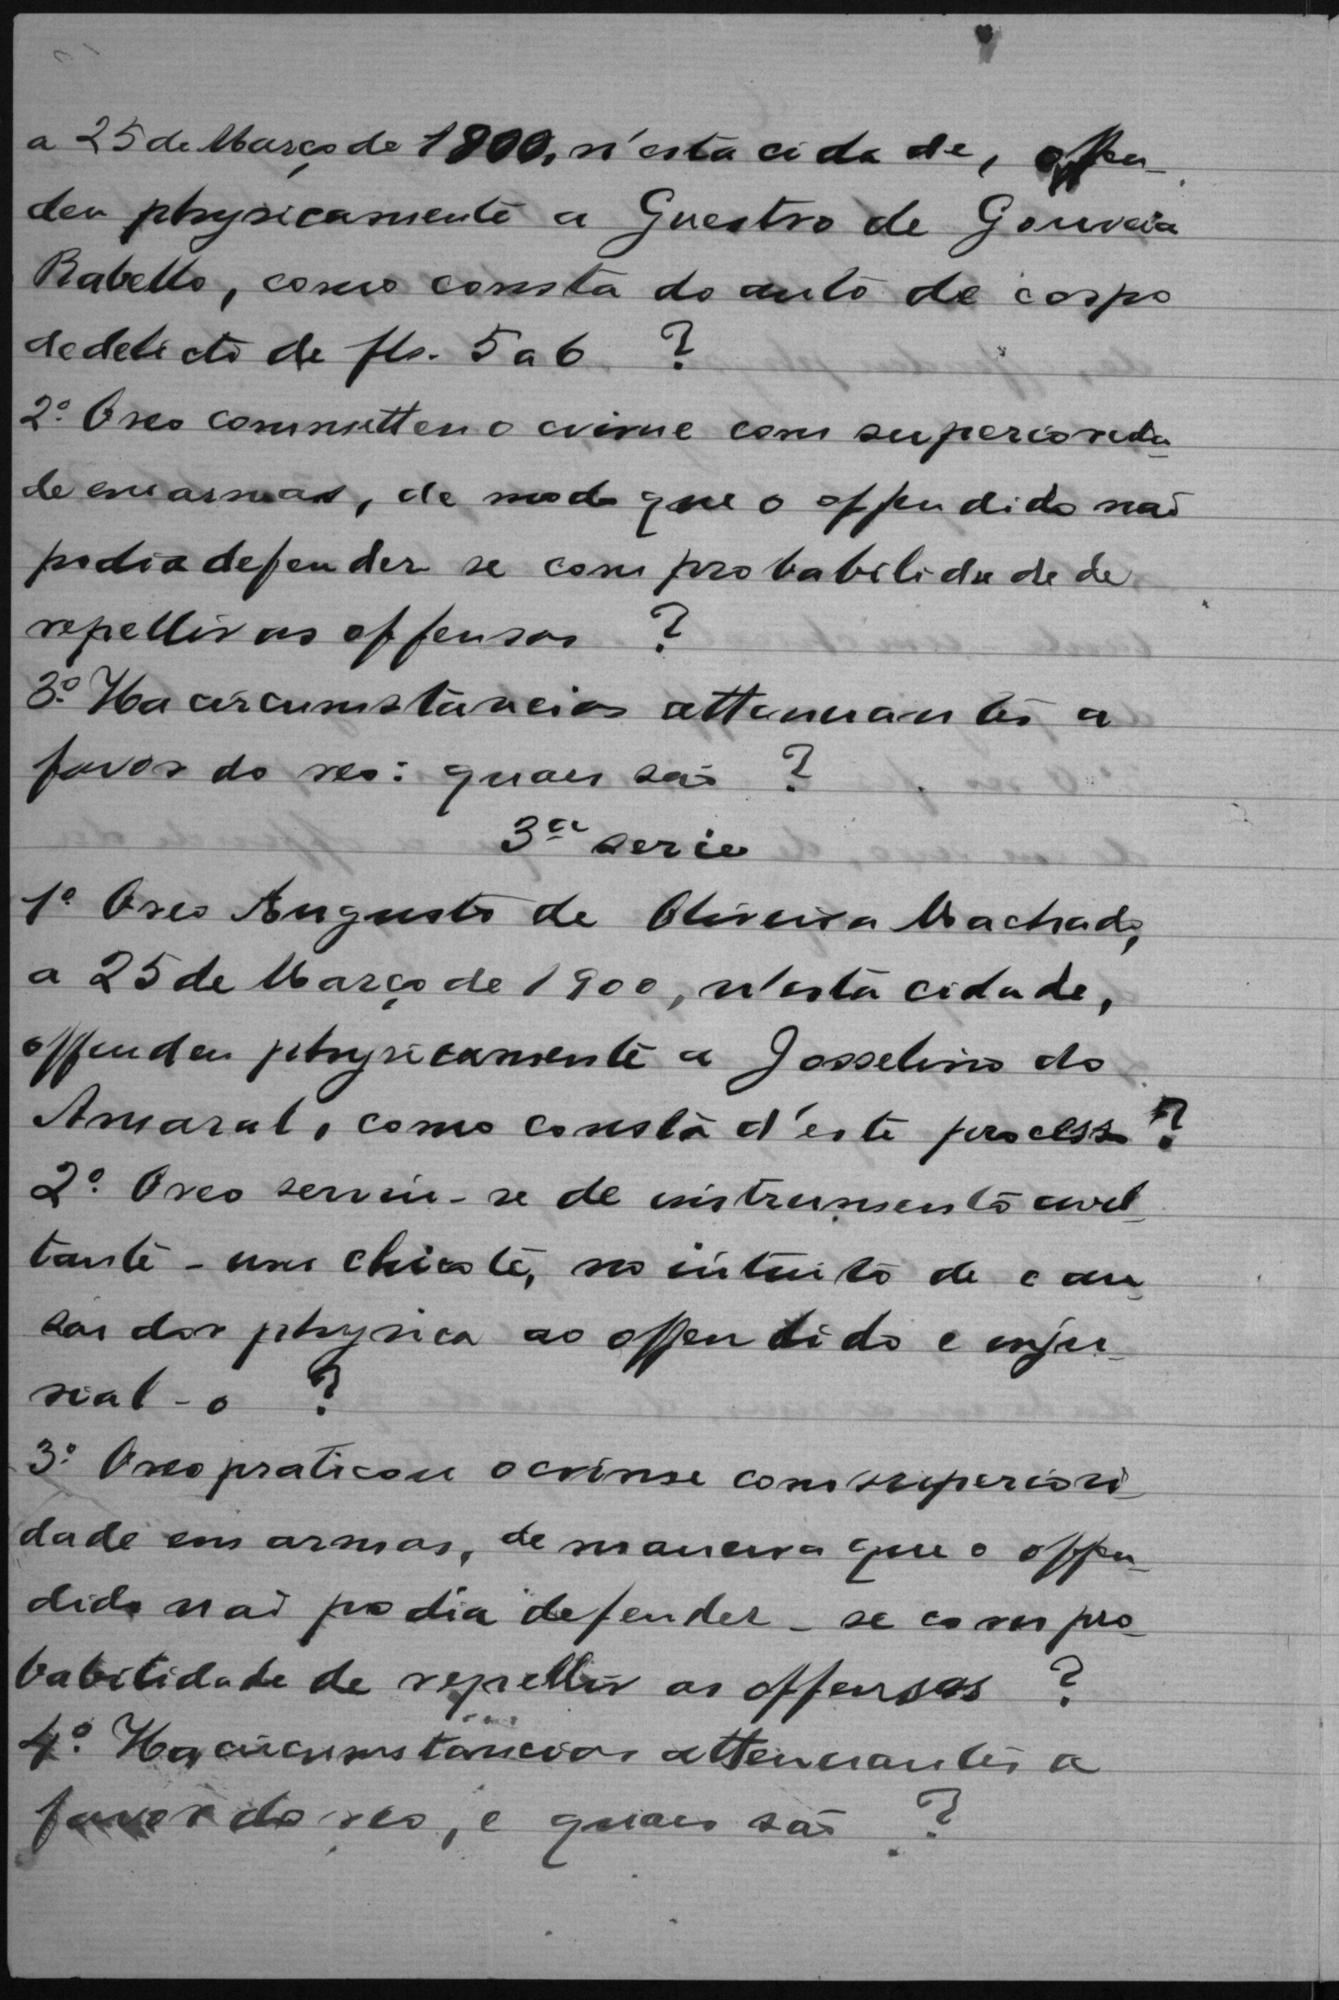 a 25 de Março de 1900, n'esta cidade, offen-
deu physicamente a Guestro de Gouveia
Rabello, como consta do auto de corpo
de delicto de fls. 5 a 6 ?
2º O reo commetteu o crime com superiorida-
de em armas, de modo que o offendido não
podia defender se com probabilidade de
repellir as offensas ?
3º Ha circumstancias attenuantes a
favor do reo: quaes são ?
3ª serie
1º O reo Augusto de Oliveira Machado,
a 25 de Março de 1900, n'esta cidade,
offendeu physicamente a Josselino do
Amaral, como consta d'este processo ?
2º O reo serviu-se de instrumento avil-
tante - um chicote, no intuito de cau-
sar dor physica ao offendido e inju-
rial-o ?
3º O reo praticou o crime com superiori-
dade em armas, de maneira que o offen-
dido não podia defender-se com pro-
babilidade de repellir as offensas ?
4º Ha circumstancias attenuantes a
favor do reo, e quaes são ?